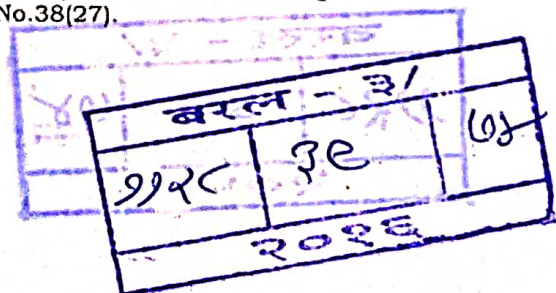 No.38(27).
बरल - ३/
११२८ ३९ ७५
२०१६